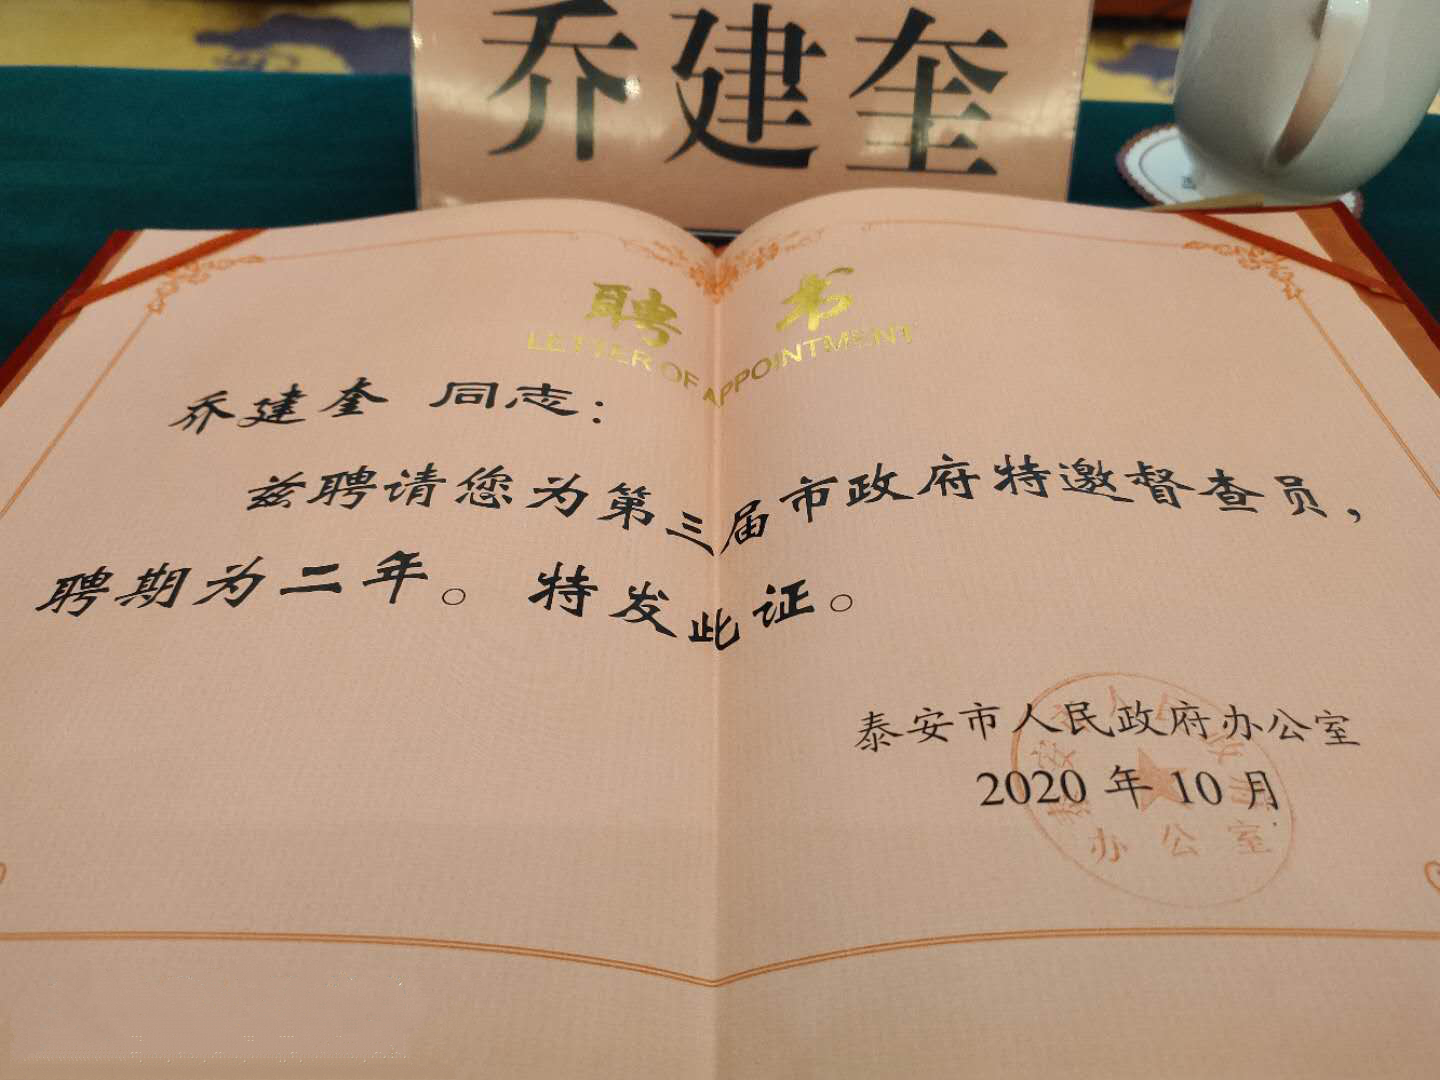 乔建奎
聘书
LETTER OF APPOINTMENT
乔建奎 同志：
兹聘请您为第三届市政府特邀督查员，
聘期为二年。特发此证。
泰安市人民政府办公室
2020 年 10 月
办公室